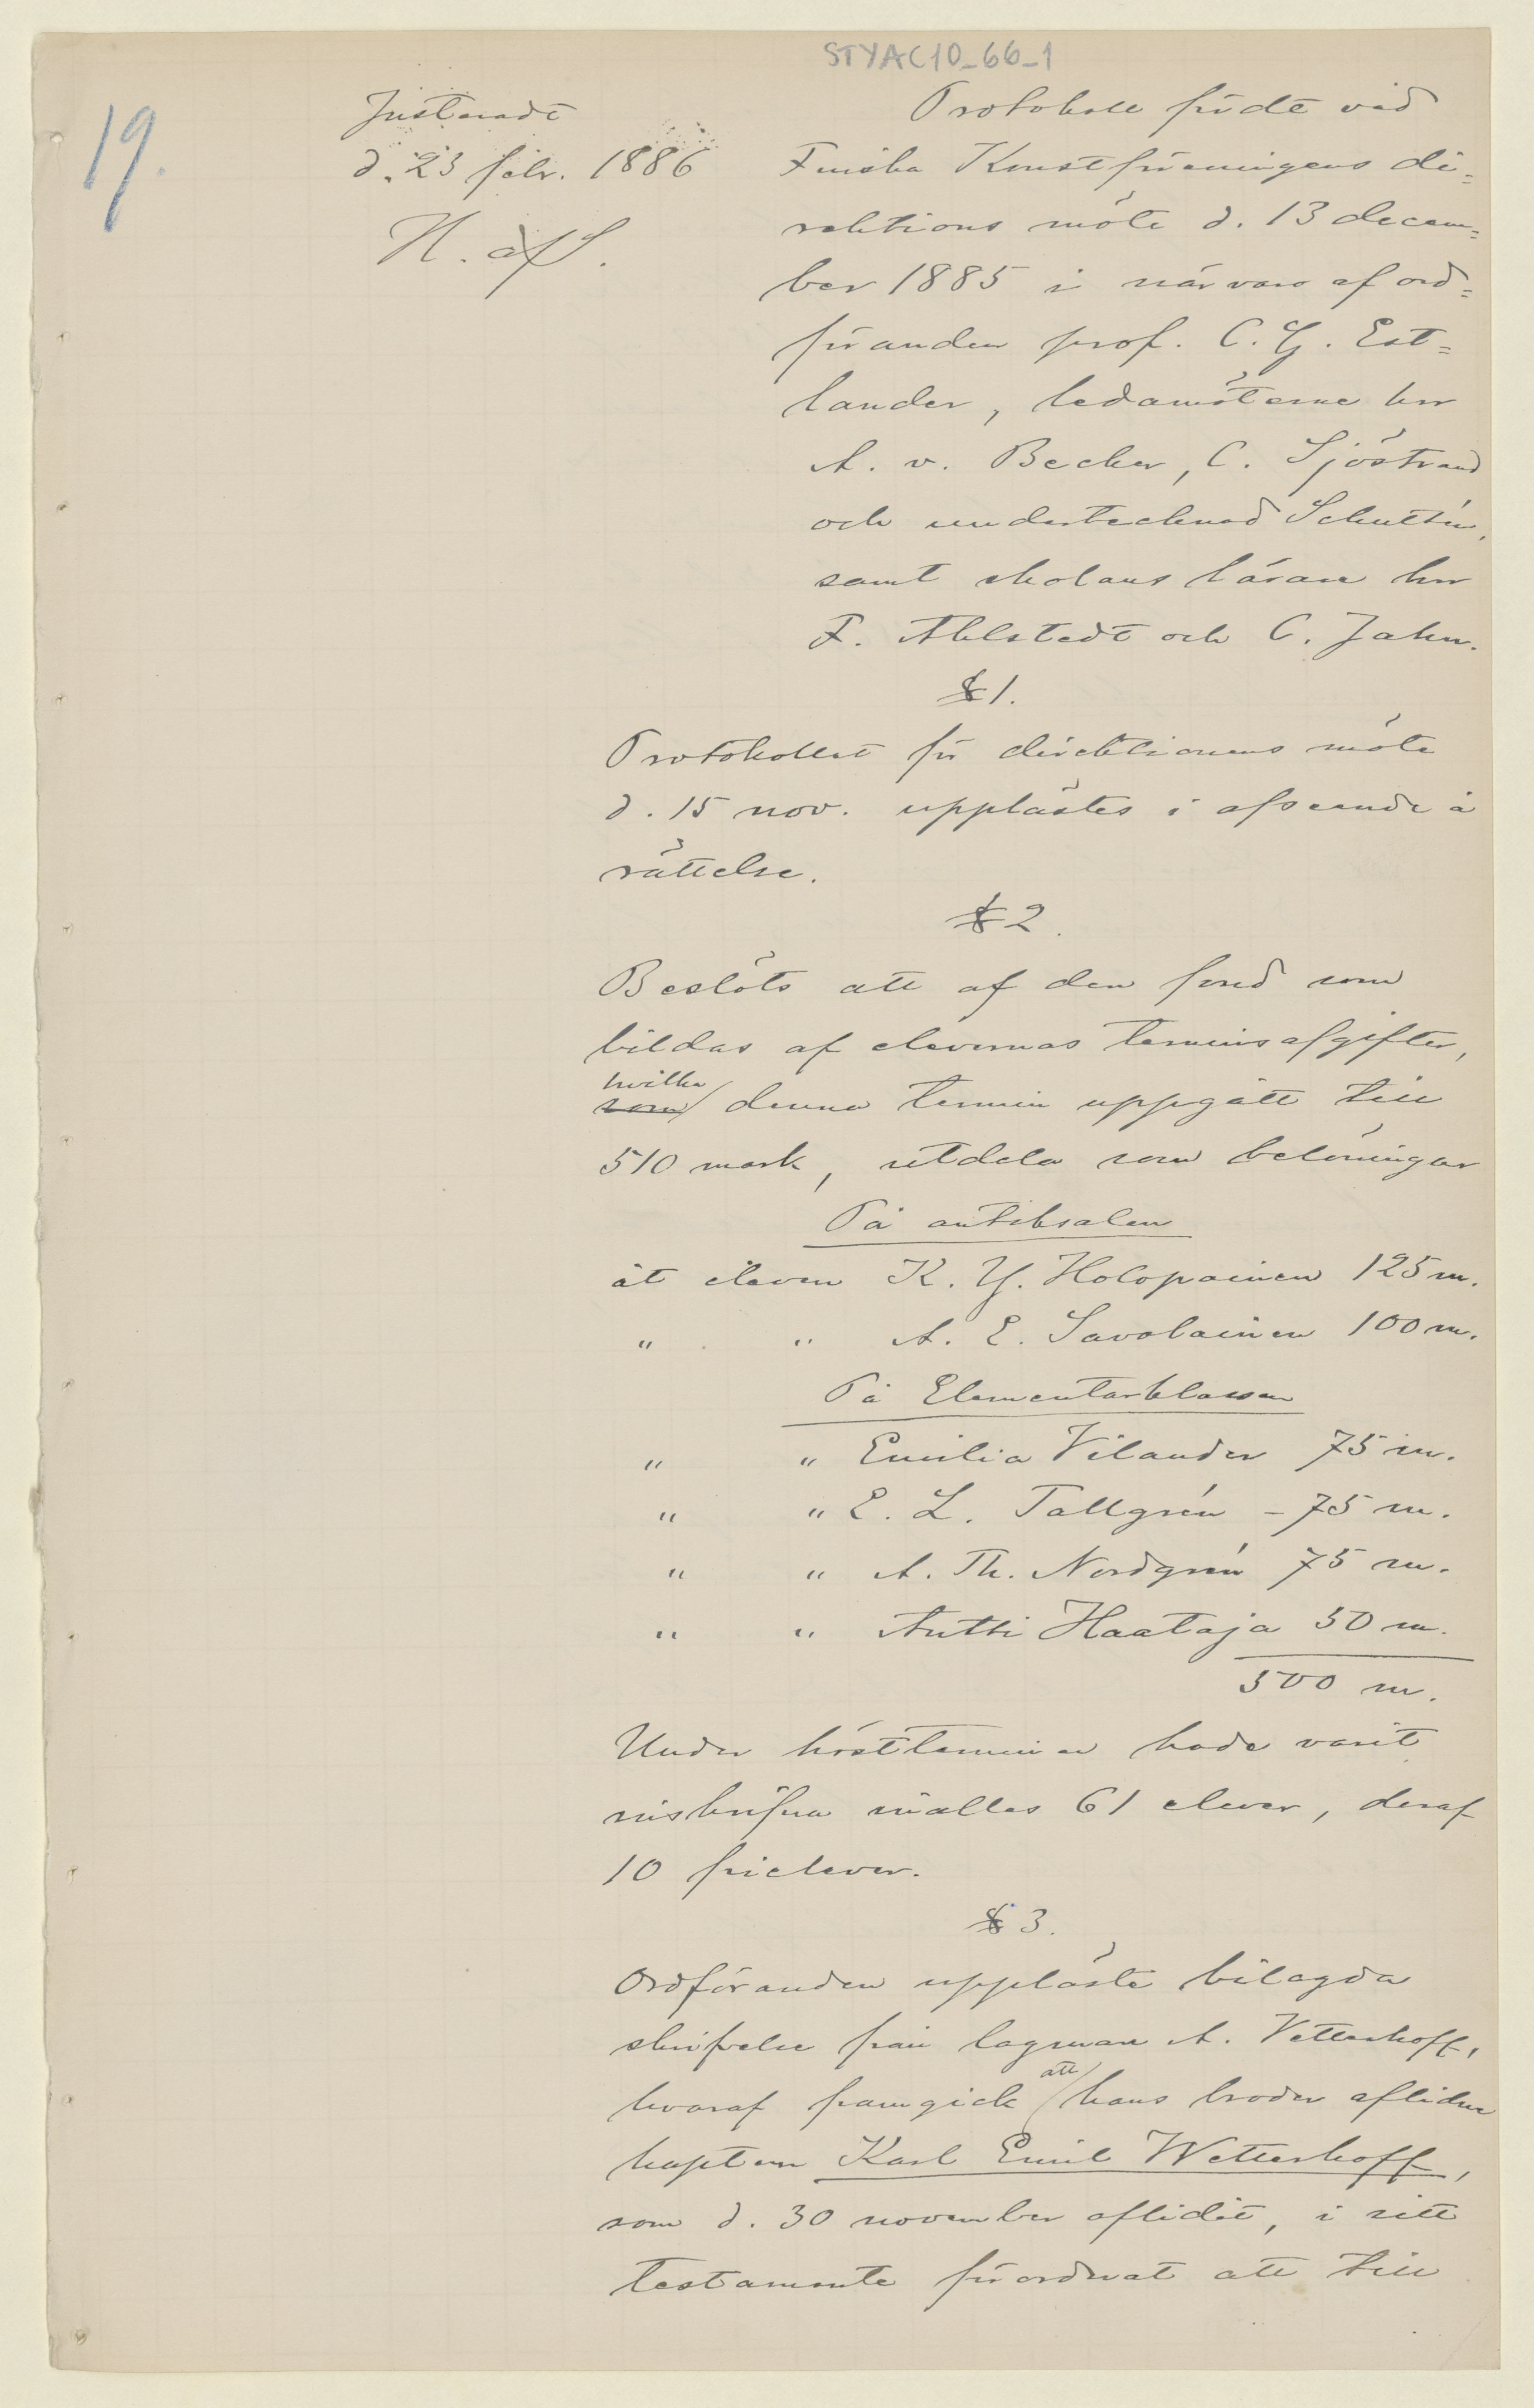 STYAC10_66_1
19.
Justeradt
d. 23 febr. 1886
Protokoll fördt vid
Finska Konstföreningens di=
rektions möte d. 13 decem=
ber 1885 i närvaro af ord=
föranden prof. C. G. Est=
lander, ledamöterne hrr
A. v. Becker, C. Sjöstrand
och undertecknad Schultén,
samt skolans lärare hrr
F. Ahlstedt och C. Jahn.
§ 1.
Protokollet för direktionens möte
d. 15 nov. upplästes i afseende å
rättelse.
§ 2.
Beslöts att af den fond som
bildas af elevernas terminsafgifter,
hvilka
som denna termin uppgått till
510 mark, utdela som belöningar
På antiksalen
åt eleven K. Y. Holopainen 125 m.
" " A. E. Savolainen 100 m.
På Elementarklassen
" " Emilia Vilander 75 m.
" " E. L. Tallgrén – 75 m.
" " A. Th. Nordgrén 75 m.
" " Antti Haataja 50 m.
500 m.
Under höstterminen hade varit
inskrifna inalles 61 elever, deraf
10 frielever.
§ 3.
Ordföranden uppläste bilagda
skrifvelse från lagman A. Vetterhoff,
hvaraf framgick att hans broder aflidne
kapten Karl Emil Wetterhoff,
som d. 30 november aflidit, i sitt
testamente förordnat att till